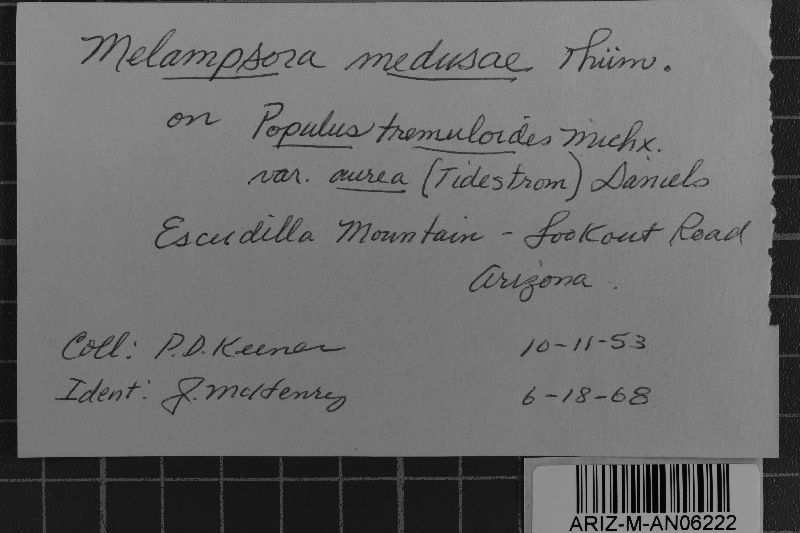 Melampsora medusae Thüm.
on Populus tremuloides Michx.
var. aurea (Tidestrom) Daniels
Escudilla Mountain - Lookout Road
Arizona.
Coll: P.D. Keener 10-11-53
Ident: J. McHenry 6-18-68
ARIZ-M-AN06222